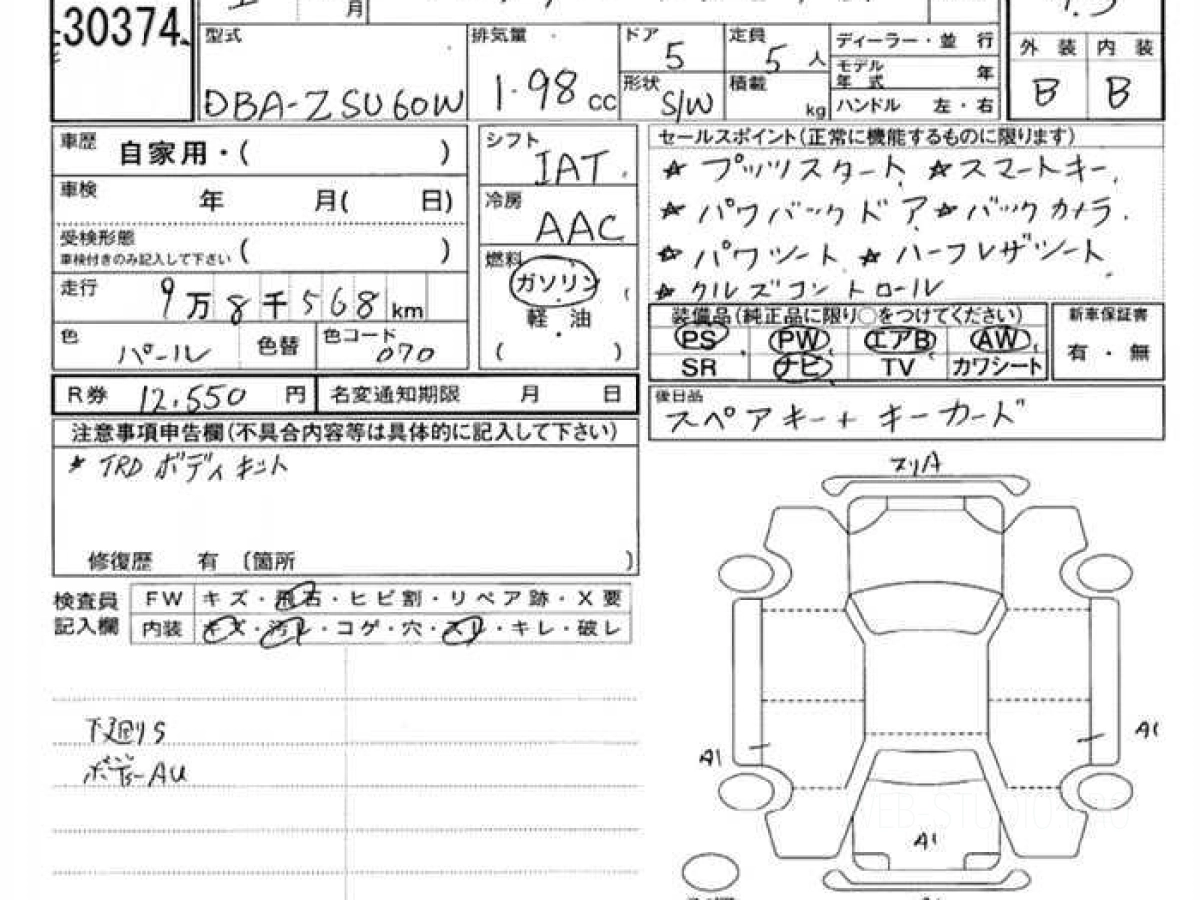 30374
月
型式 DBA-ZSU60W
排気量 1.98 CC
ドア 5
定員 5 人
形状 S/W
積載 kg
ディーラー・並 行
モデル年式 年
ハンドル 左・右
外 装 内 装
B B
車歴 自家用・( )
車検 年 月( 日)
受検形態 ( )
車検付きのみ記入して下さい
走行 9万8千568km
色 パール 色替
色コード 070
シフト IAT
冷房 AAC
燃料 ガソリン・軽油
( )
セールスポイント(正常に機能するものに限ります)
★ プッツスタート ★ スマートキー.
★ パワバックドア ★ バックカメラ.
★ パワシート ★ ハーフレザシート
★ クルズコントロール
装備品(純正品に限り○をつけてください)
PS PW エアB AW
SR ナビ TV カワシート
新車保証書
有・無
R券 12,550 円
名変通知期限 月 日
後日品
スペアキー+キーカード
注意事項申告欄(不具合内容等は具体的に記入して下さい)
* TRD ボディキット
修復歴 有 〔箇所 )
検査員記入欄
FW キズ・飛石・ヒビ割・リペア跡・X要
内装 キズ・汚レ・コゲ・穴・スレ・キレ・破レ
下廻りS
ボデーAU
スリA
A1
A1
A1
WEB-STUDIO.PRO